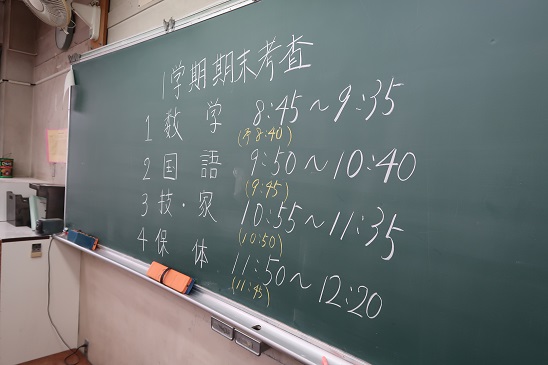 1学期期末考査
1 数学 8:45～9:35
(予8:40)
2 国語 9:50～10:40
(9:45)
3 技・家 10:55～11:35
(10:50)
4 保体 11:50～12:20
(11:45)